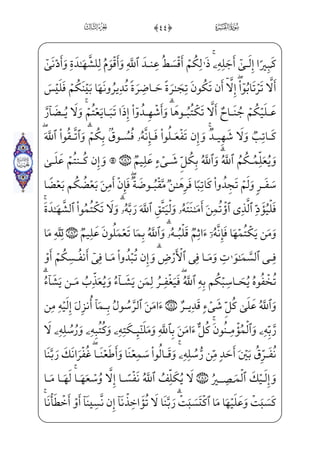 الجزء الثالث ﴿٤٤﴾ سورة البقرة
كَبِيرًا إِلَىٰٓ أَجَلِهِۦ ۚ ذَٰلِكُمْ أَقْسَطُ عِندَ ٱللَّهِ وَأَقْوَمُ لِلشَّهَٰدَةِ وَأَدْنَىٰٓ
أَلَّا تَرْتَابُوٓا۟ ۖ إِلَّآ أَن تَكُونَ تِجَٰرَةً حَاضِرَةً تُدِيرُونَهَا بَيْنَكُمْ فَلَيْسَ
عَلَيْكُمْ جُنَاحٌ أَلَّا تَكْتُبُوهَا ۗ وَأَشْهِدُوٓا۟ إِذَا تَبَايَعْتُمْ ۚ وَلَا يُضَآرَّ
كَاتِبٌ وَلَا شَهِيدٌ ۚ وَإِن تَفْعَلُوا۟ فَإِنَّهُۥ فُسُوقٌۢ بِكُمْ ۗ وَٱتَّقُوا۟ ٱللَّهَ ۖ
وَيُعَلِّمُكُمُ ٱللَّهُ ۗ وَٱللَّهُ بِكُلِّ شَىْءٍ عَلِيمٌ ۞ وَإِن كُنتُمْ عَلَىٰ
سَفَرٍ وَلَمْ تَجِدُوا۟ كَاتِبًا فَرِهَٰنٌ مَّقْبُوضَةٌ ۖ فَإِنْ أَمِنَ بَعْضُكُم بَعْضًا
فَلْيُؤَدِّ ٱلَّذِى ٱؤْتُمِنَ أَمَٰنَتَهُۥ وَلْيَتَّقِ ٱللَّهَ رَبَّهُۥ ۗ وَلَا تَكْتُمُوا۟ ٱلشَّهَٰدَةَ ۚ
وَمَن يَكْتُمْهَا فَإِنَّهُۥٓ ءَاثِمٌ قَلْبُهُۥ ۗ وَٱللَّهُ بِمَا تَعْمَلُونَ عَلِيمٌ لِّلَّهِ مَا
فِى ٱلسَّمَٰوَٰتِ وَمَا فِى ٱلْأَرْضِ ۗ وَإِن تُبْدُوا۟ مَا فِىٓ أَنفُسِكُمْ أَوْ
تُخْفُوهُ يُحَاسِبْكُم بِهِ ٱللَّهُ ۖ فَيَغْفِرُ لِمَن يَشَآءُ وَيُعَذِّبُ مَن يَشَآءُ ۗ
وَٱللَّهُ عَلَىٰ كُلِّ شَىْءٍ قَدِيرٌ ءَامَنَ ٱلرَّسُولُ بِمَآ أُنزِلَ إِلَيْهِ مِن
رَّبِّهِۦ وَٱلْمُؤْمِنُونَ ۚ كُلٌّ ءَامَنَ بِٱللَّهِ وَمَلَٰٓئِكَتِهِۦ وَكُتُبِهِۦ وَرُسُلِهِۦ لَا
نُفَرِّقُ بَيْنَ أَحَدٍ مِّن رُّسُلِهِۦ ۚ وَقَالُوا۟ سَمِعْنَا وَأَطَعْنَا ۖ غُفْرَانَكَ رَبَّنَا
وَإِلَيْكَ ٱلْمَصِيرُ لَا يُكَلِّفُ ٱللَّهُ نَفْسًا إِلَّا وُسْعَهَا ۚ لَهَا مَا
كَسَبَتْ وَعَلَيْهَا مَا ٱكْتَسَبَتْ ۗ رَبَّنَا لَا تُؤَاخِذْنَآ إِن نَّسِينَآ أَوْ أَخْطَأْنَا ۚ